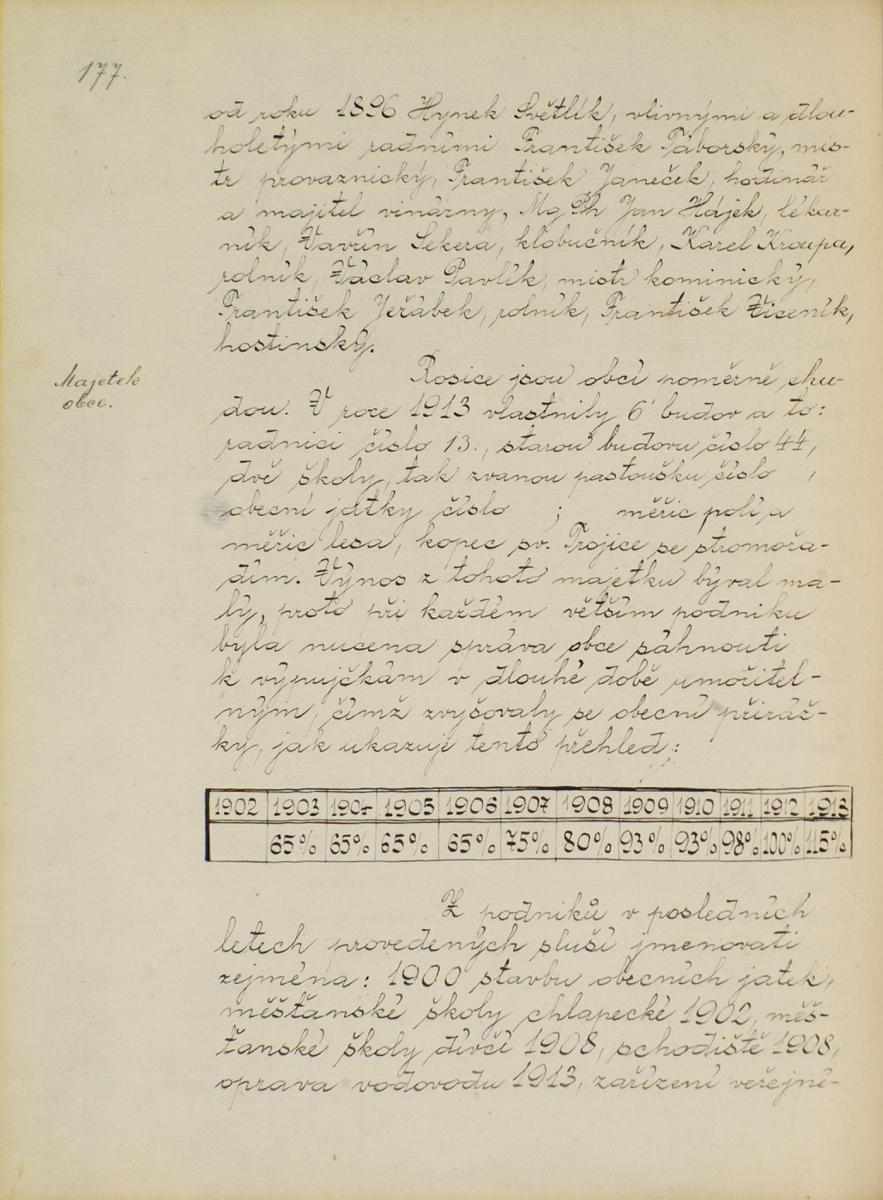 177.
od roku 1896 Hynek Světlík, vlivnými a dlou-
holetými radními František Táborský, mis-
tr provaznický, František Janeček, hodinář
a majitel vinárny, Mg Ph Jan Hájek, lékár-
ník, Vavřín Sekera, kloboučník, Karel Kroupa,
rolník, Václav Pavlík, mistr kominický,
František Jeřábek, rolník, František Zicník,
hostinský.
Majetek
obce.
Rosice jsou obcí poměrně chu-
dou. V roce 1913 vlastnily 6 budov a to:
radnici číslo 13., starou budovu číslo 44,
dvě školy, tak zvanou pastoušku číslo ,
obecní jatky číslo ; měřic polí a
měřic lesa, kopec sv. Trojice se stromořa-
dím. Výnos z tohoto majetku býval ma-
lý, proto při každém větším podniku
byla nucena správa obce sáhnouti
k výpujčkám v dlouhé době umořitel-
ným, čímž zvyšovaly se obecní přiráž-
ky, jak ukazuje tento přehled:
1902 1903 1904 1905 1906 1907 1908 1909 1910 1911 1912 1913
65% 65% 65% 65% 75% 80% 93% 93% 98% 100% 115%
Z podniků v posledních
letech provedených sluší jmenovati
zejména: 1900 stavbu obecních jatek,
měšťanské školy chlapecké 1902, měš-
ťanské školy dívčí 1908, schodiště 1908,
oprava vodovodu 1913, zařízení veřejné-